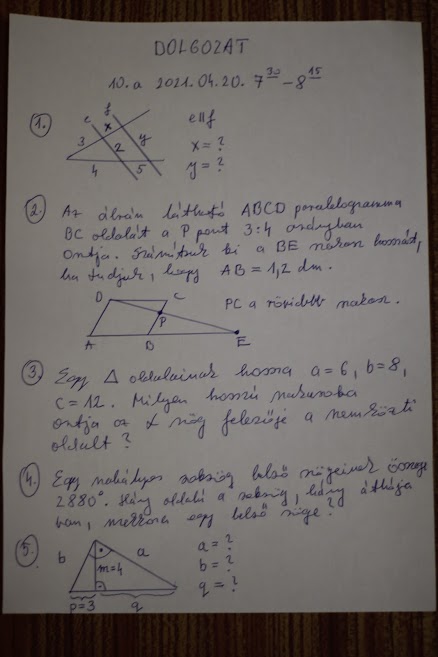 DOLGOZAT
10.a 2021.04.20. 7³⁰-8¹⁵
1.
e f
x
3 2 y
4 5
e||f
x = ?
y = ?
2. Az ábrán látható ABCD paralelogramma
BC oldalát a P pont 3:4 arányban
osztja. Számítsuk ki a BE szakasz hosszát,
ha tudjuk, hogy AB = 1,2 dm.
D C
P
A B E
PC a rövidebb szakasz.
3. Egy △ oldalainak hossza a = 6, b = 8,
c = 12. Milyen hosszú szakaszokra
osztja az α szög felezője a szemközti
oldalt?
4. Egy szabályos sokszög belső szögeinek összege
2880°. Hány oldalú a sokszög, hány átlója
van, mekkora egy belső szöge?
5.
b a
m=4
p=3 q
a = ?
b = ?
q = ?